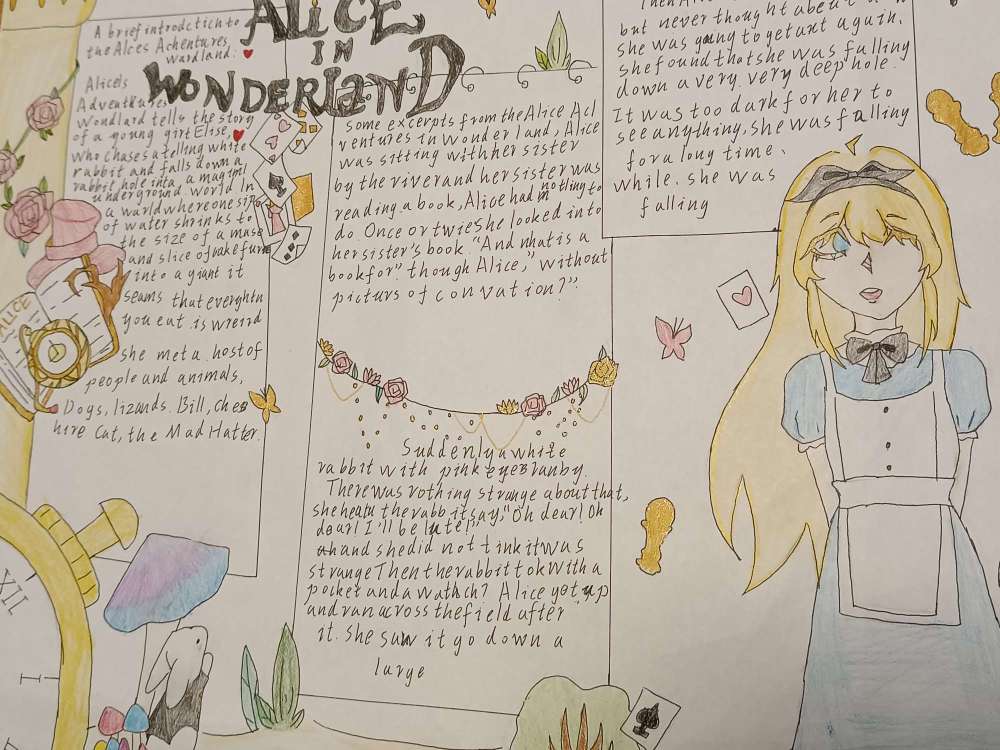 ALICE
IN
WONDERLanD
A brief introdction to
the Alces Achentures
wardland.
Alice's
Adventkures
Wondlard tells the story
of a goung girt Elise,
who chases a telling white
rabbit and falls down a
rabbit hole inta, a magiml
underground. world In
a world where one sip
of water shrinks to
the size of a muse
and slice of cake furn
into a giant it
seams that everghtn
you eat is wreird
she met a host of
people and animals,
Dogs, lizards. Bill, Ches
hire Cat, the Mad Hatter.
ALICE
XII
I
some excerpts from the Alice Ad
ventures in Wonder land, Alice
was sitting with her sister
by the river and her sister was
reading a book, Alice had notling to
do. Once or twie she looked into
her sister's book. "And nhat is a
book for" though Alice," without
picturs of convation?"
Suddenly a white
rabbit with pink eyes ranby.
There was rothing strange about that,
she heatu the rabb it say, "Oh dear! Oh
dear! I'll be lute!"
ahand she did not tink it was
strange Then the rabbit tok with a
pocket and a wathch? Alice got up
and ran across the field after
it. She saw it go down a
lurge
but never thought about
she was going to getant again.
She found that she was falling
down a very, very deep hole.
It was too dark for her to
see anything, she was falling
for a long time.
while. she was
falling